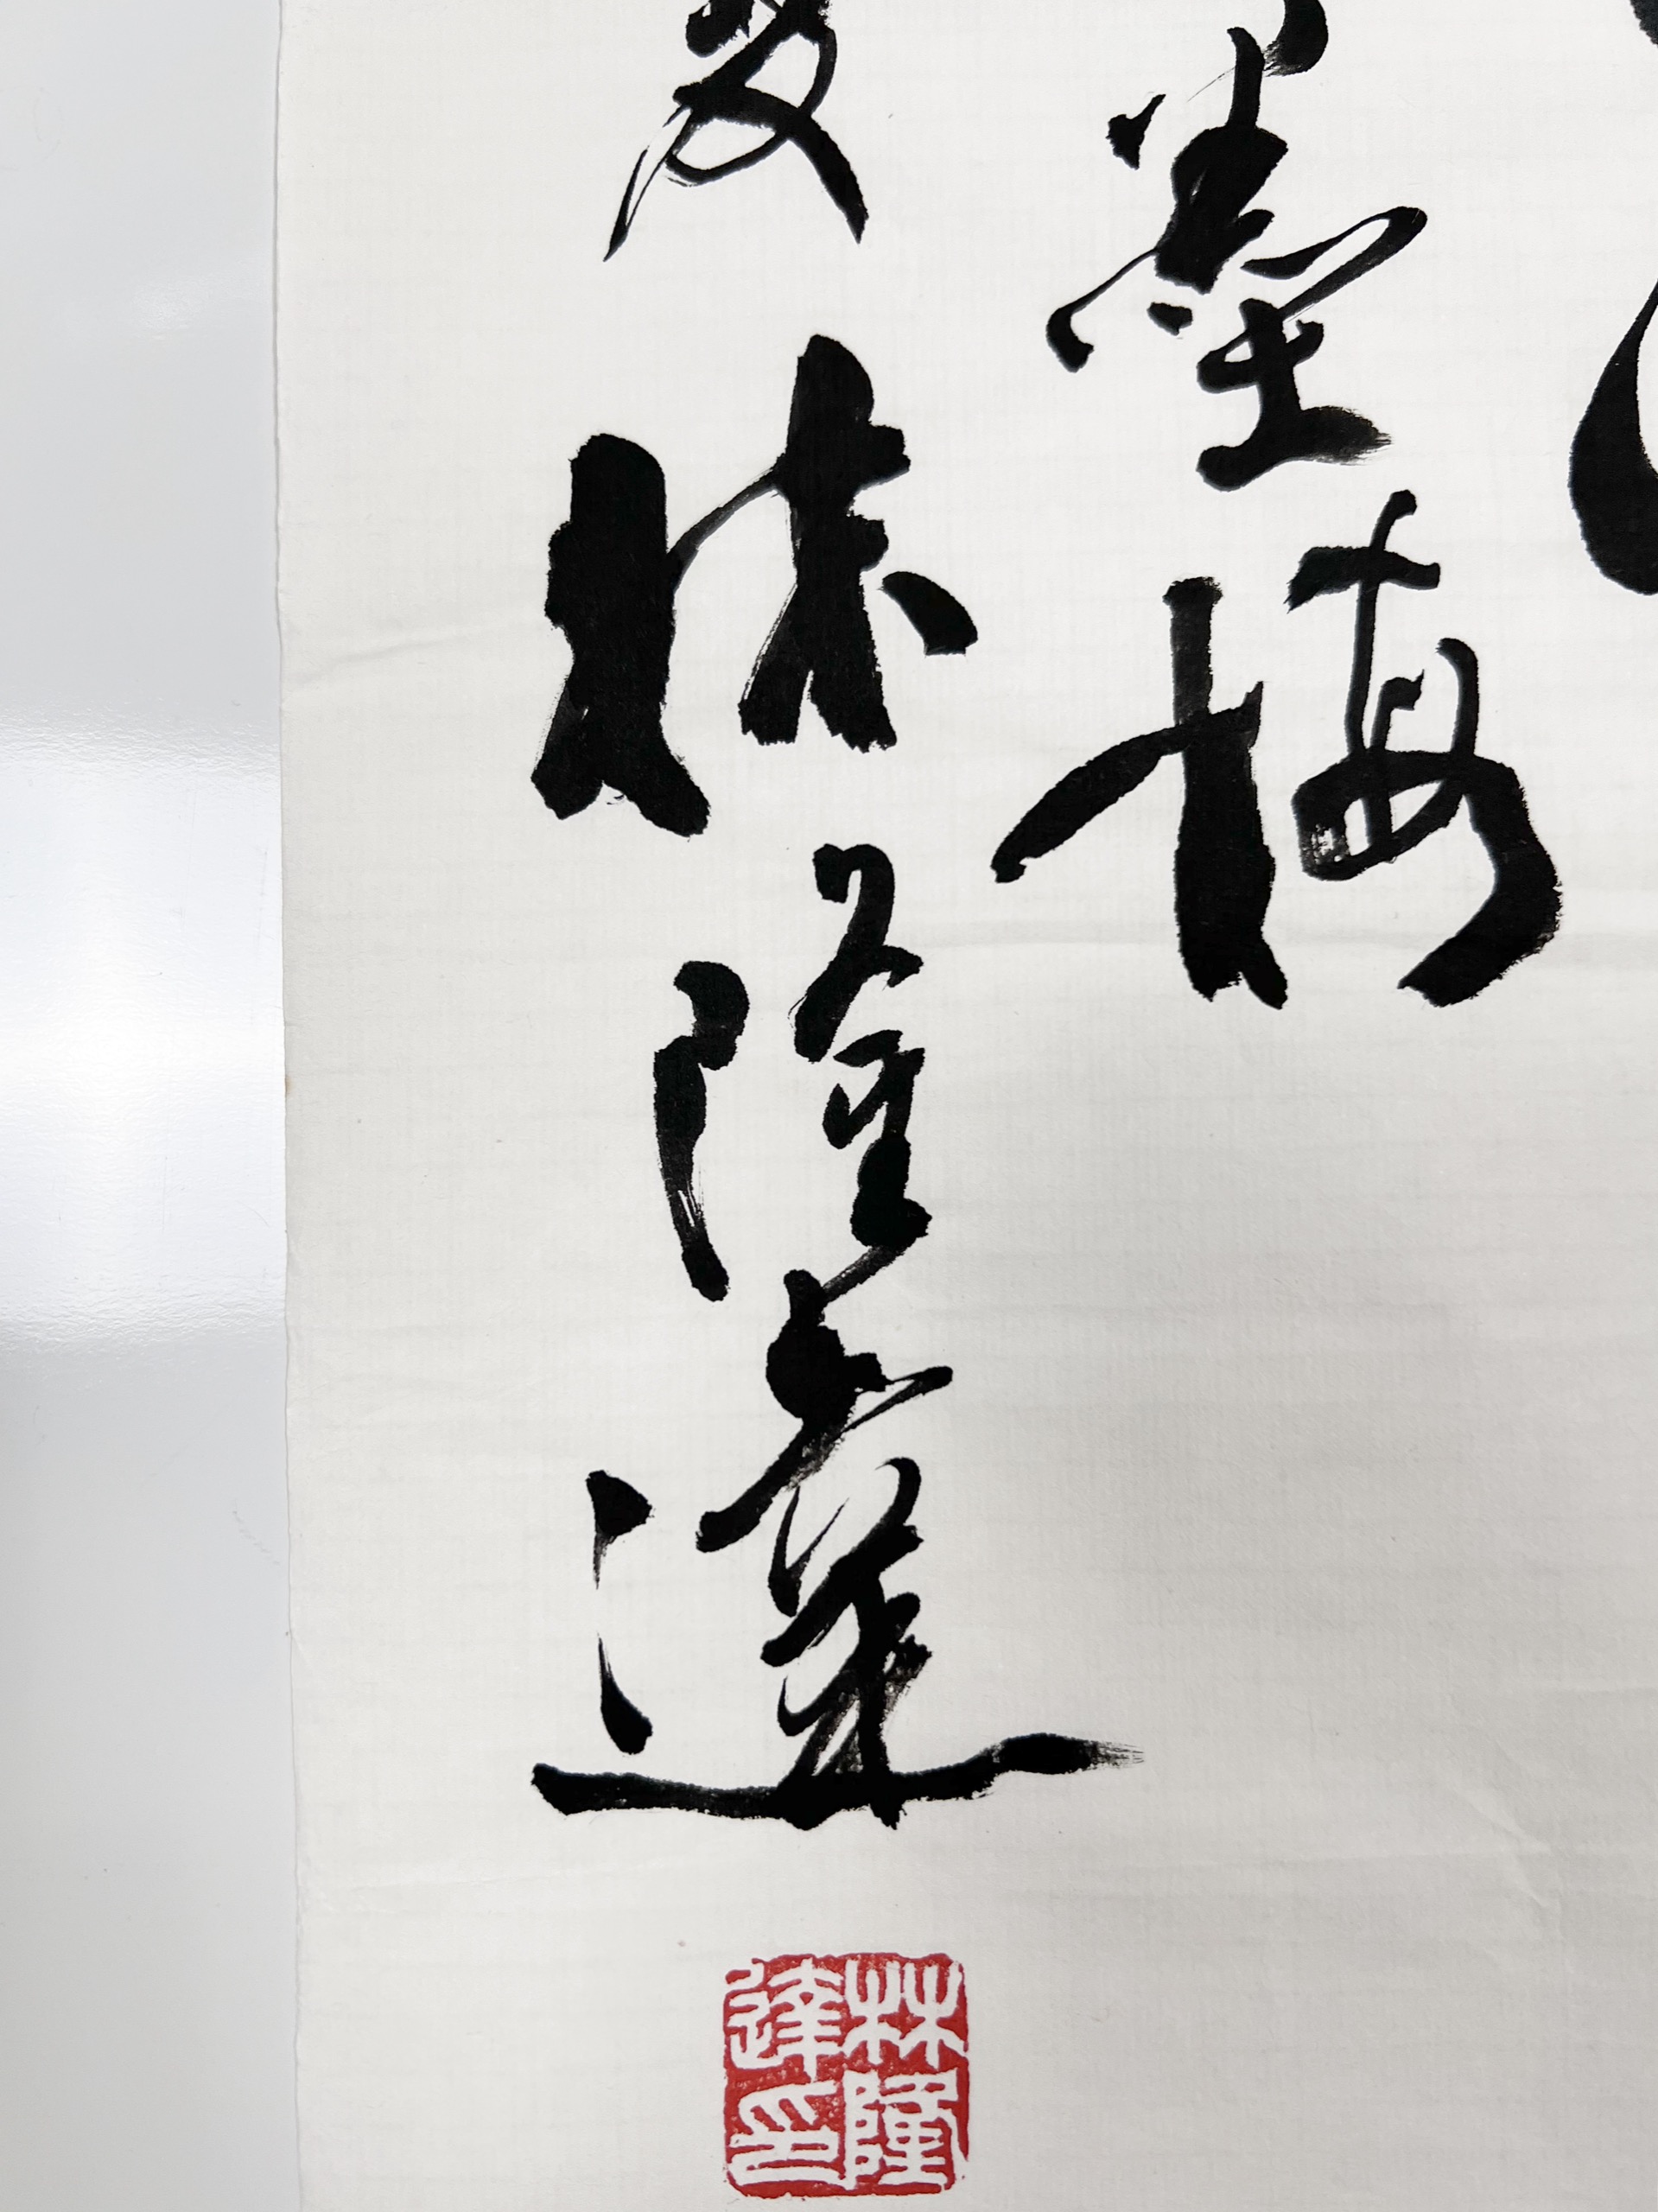 墨梅
林隆達
林隆
達印